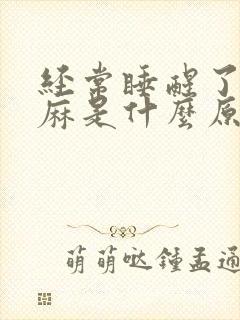 经常睡醒了
麻是什麼原
萌萌哒鍾孟通